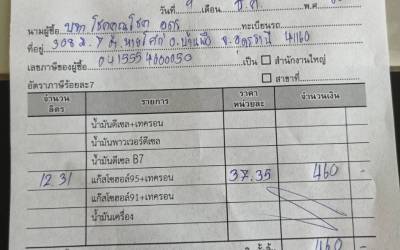 วันที่ 9 เดือน ธ.ค. พ.ศ.
นามผู้ซื้อ บจก โชคคุณโชค ทะเบียนรถ
ที่อยู่ 308 อ.บ้านผือ จ.อุดรธานี 41160
เลขภาษีของผู้ซื้อ 0415554000050 เป็น สำนักงานใหญ่
อัตราภาษีร้อยละ7 สาขาที่
จำนวนลิตร รายการ ราคาหน่วยละ จำนวนเงิน
น้ำมันดีเซล+เทครอน
น้ำมันพาวเวอร์ดีเซล
น้ำมันดีเซล B7
12.31 แก๊สโซฮอล์95+เทครอน 37.35 460 -
แก๊สโซฮอล์91+เทครอน
น้ำมันเครื่อง
460 -